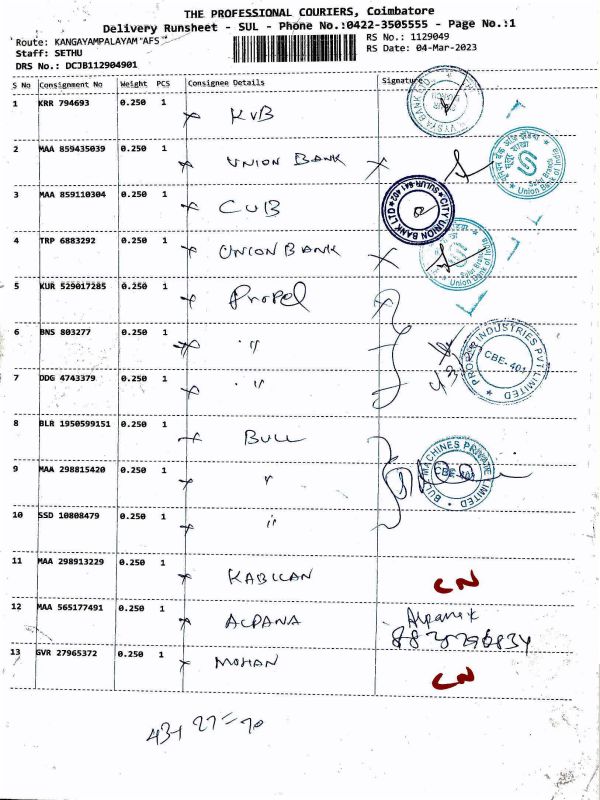 THE PROFESSIONAL COURIERS, Coimbatore
Delivery Runsheet - SUL - Phone No.:0422-3505555 - Page No.:1
Route: KANGAYAMPALAYAM"AFS"
RS No.: 1129049
Staff: SETHU
RS Date: 04-Mar-2023
DRS No.: DCJB112904901
S No Consignment No Weight PCS Consignee Details Signature
1 KRR 794693 0.250 1 KVB
2 MAA 859435039 0.250 1 UNION BANK
3 MAA 859110304 0.250 1 CUB
CITY UNION BANK LTD
4 TRP 6883292 0.250 1 UNION BANK
Union Bank of India
5 KUR 529017285 0.250 1 Propel
6 BNS 803277 0.250 1 "
PROPEL INDUSTRIES PVT LIMITED
CBE-401
7 DDG 4743379 0.250 1 "
8 BLR 1950599151 0.250 1 BULL
BULL MACHINES PRIVATE LIMITED
9 MAA 298815420 0.250 1 "
10 SSD 10808479 0.250 1 "
11 MAA 298913229 0.250 1 KABILAN CN
12 MAA 565177491 0.250 1 ALPANA
13 GVR 27965372 0.250 1 MOHAN CN
43+27=70